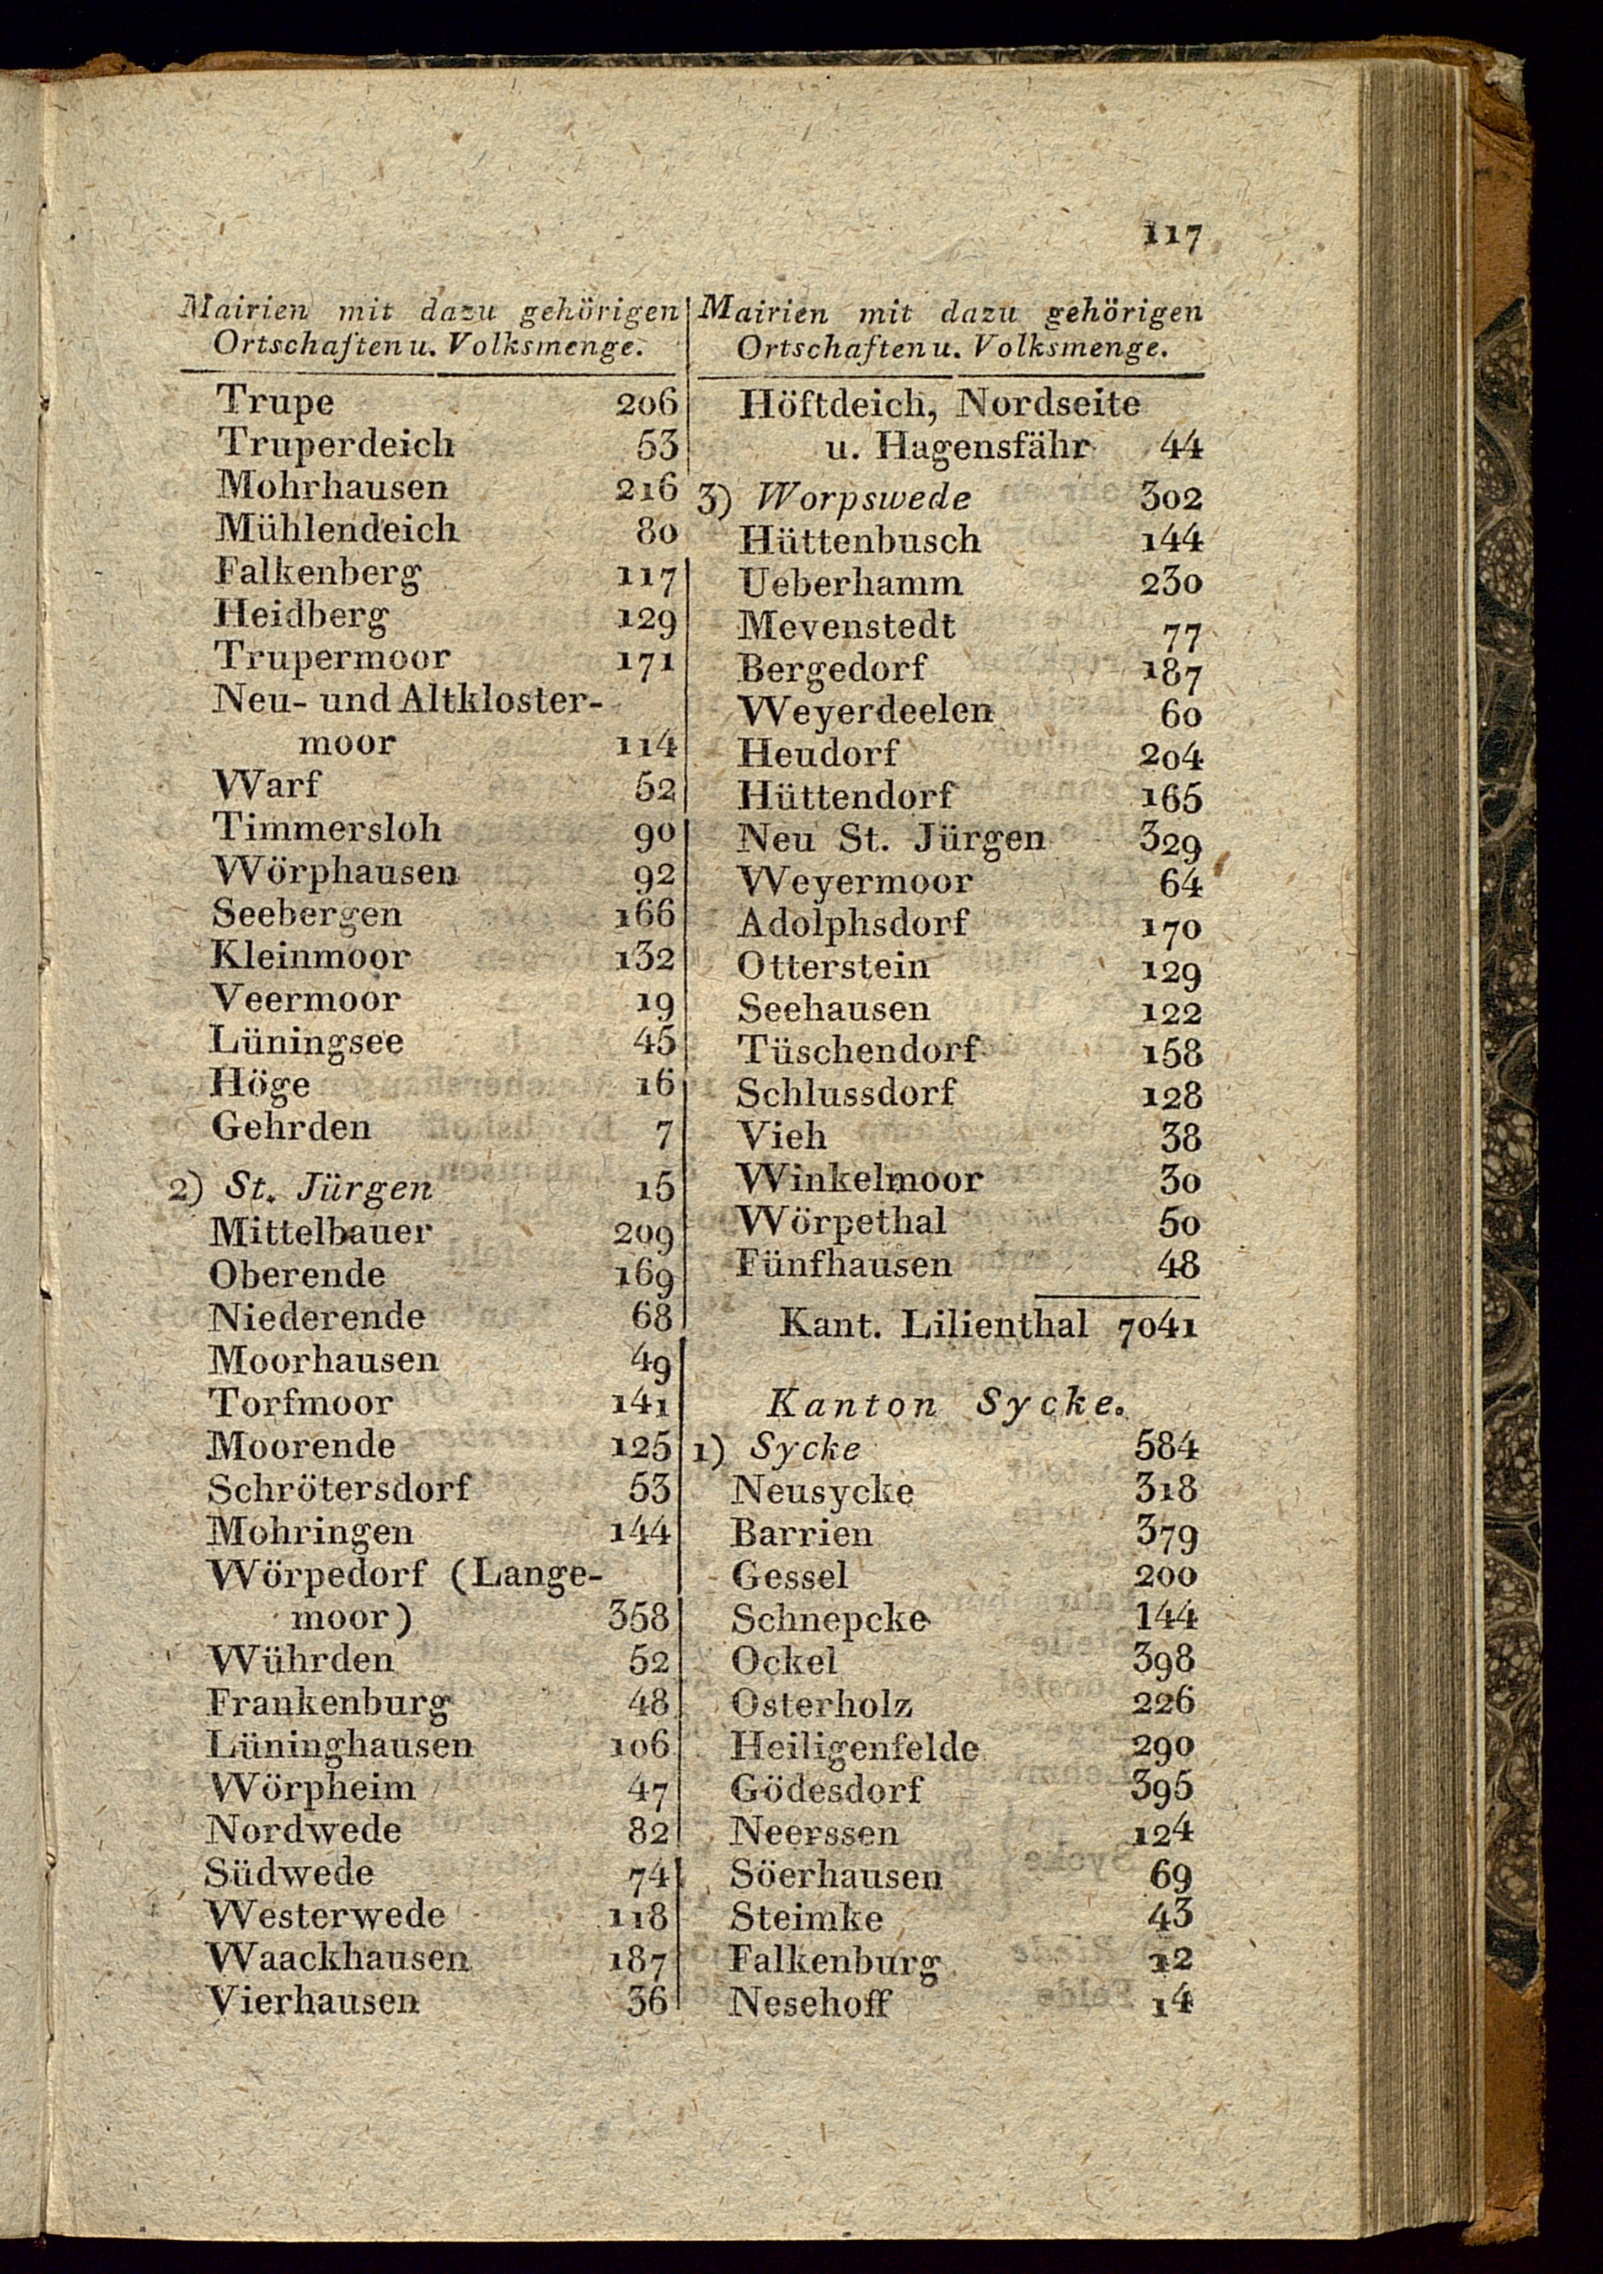 117
Mairien mit dazu gehörigen
Ortschaften u. Volksmenge.
Trupe 206
Truperdeich 53
Mohrhausen 216
Mühlendeich 80
Falkenberg 117
Heidberg 129
Trupermoor 171
Neu- und Altkloster-
moor 114
Warf 52
Timmersloh 90
Wörphausen 92
Seebergen 166
Kleinmoor 132
Veermoor 19
Lüningsee 45
Höge 16
Gehrden 7
2) St. Jürgen 15
Mittelbauer 209
Oberende 169
Niederende 68
Moorhausen 49
Torfmoor 141
Moorende 125
Schrötersdorf 53
Mohringen 144
Wörpedorf (Lange-
moor) 358
Wührden 52
Frankenburg 48
Lüninghausen 106
Wörpheim 47
Nordwede 82
Südwede 74
Westerwede 118
Waackhausen 187
Vierhausen 36
Mairien mit dazu gehörigen
Ortschaften u. Volksmenge.
Höftdeich, Nordseite
u. Hagensfähr 44
3) Worpswede 302
Hüttenbusch 144
Ueberhamm 230
Mevenstedt 77
Bergedorf 187
Weyerdeelen 60
Heudorf 204
Hüttendorf 165
Neu St. Jürgen 329
Weyermoor 64
Adolphsdorf 170
Otterstein 129
Seehausen 122
Tüschendorf 158
Schlussdorf 128
Vieh 38
Winkelmoor 30
Wörpethal 50
Fünfhausen 48
Kant. Lilienthal 7041
Kanton Sycke.
1) Sycke 584
Neusycke 318
Barrien 379
Gessel 200
Schnepcke 144
Ockel 398
Osterholz 226
Heiligenfelde 290
Gödesdorf 395
Neerssen 124
Söerhausen 69
Steimke 43
Falkenburg 12
Nesehoff 14